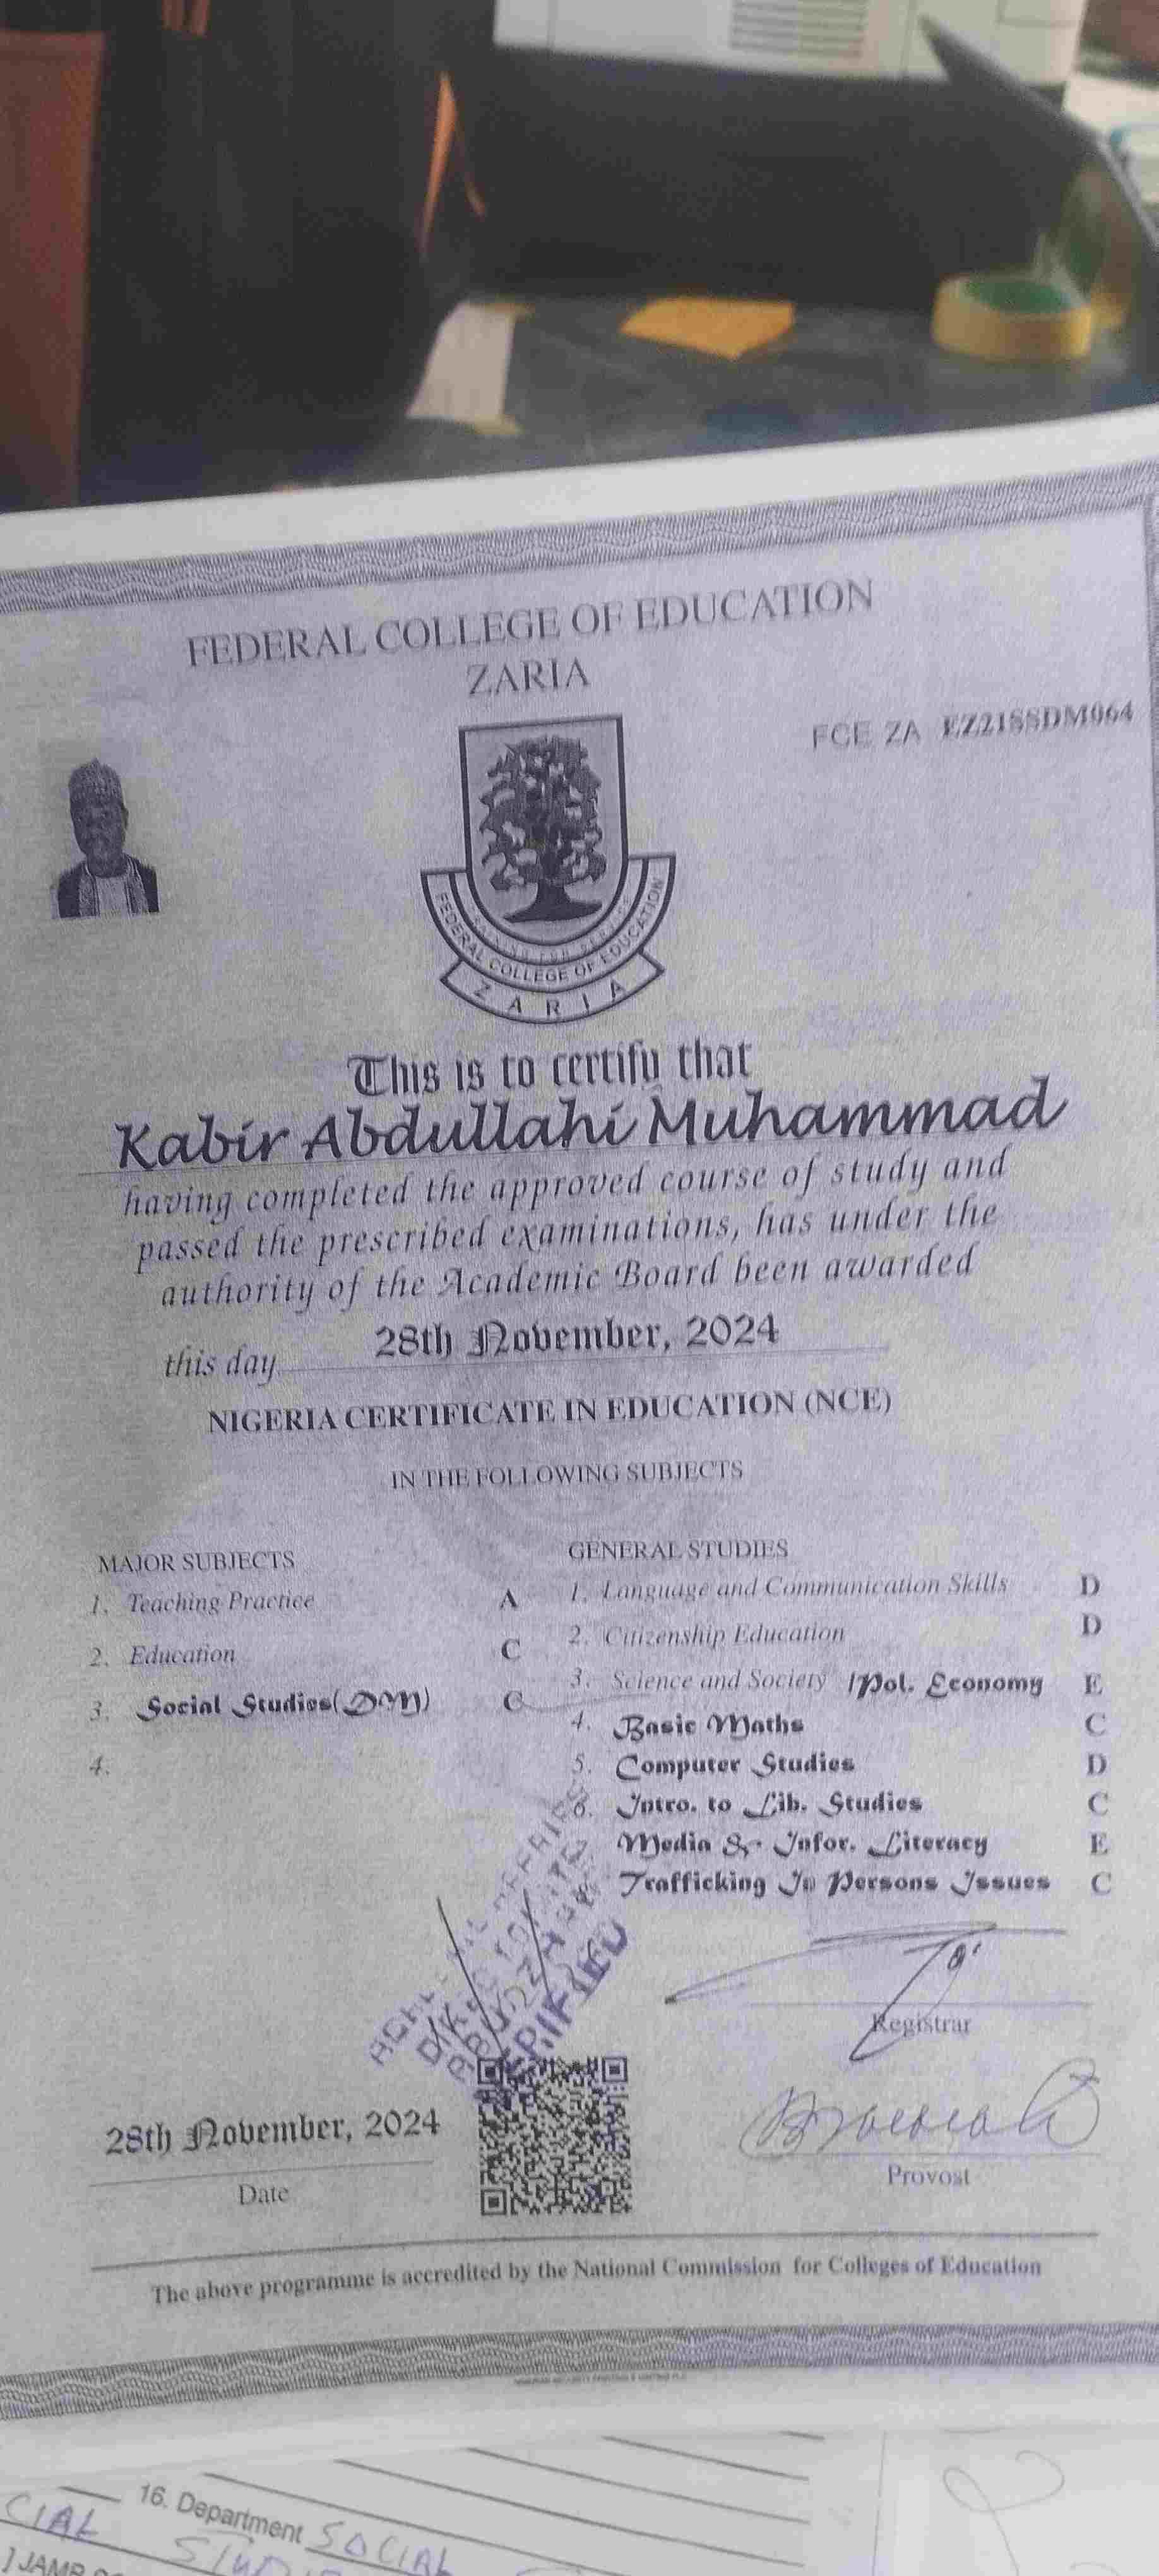 FEDERAL COLLEGE OF EDUCATION
ZARIA
FCE ZA EZ21SSDM064
FEDERAL COLLEGE OF EDUCATION
ZARIA
This is to certify that
Kabir Abdullahi Muhammad
having completed the approved course of study and
passed the prescribed examinations, has under the
authority of the Academic Board been awarded
this day 28th November, 2024
NIGERIA CERTIFICATE IN EDUCATION (NCE)
IN THE FOLLOWING SUBJECTS
MAJOR SUBJECTS
1. Teaching Practice A
2. Education C
3. Social Studies(DM) C
4.
GENERAL STUDIES
1. Language and Communication Skills D
2. Citizenship Education D
3. Science and Society /Pol. Economy E
4. Basic Maths C
5. Computer Studies D
6. Intro. to Lib. Studies C
Media & Infor. Literacy E
Trafficking In Persons Issues C
Registrar
28th November, 2024
Date
Provost
The above programme is accredited by the National Commission for Colleges of Education
16. Department SOCIAL
CIAL
JAMB